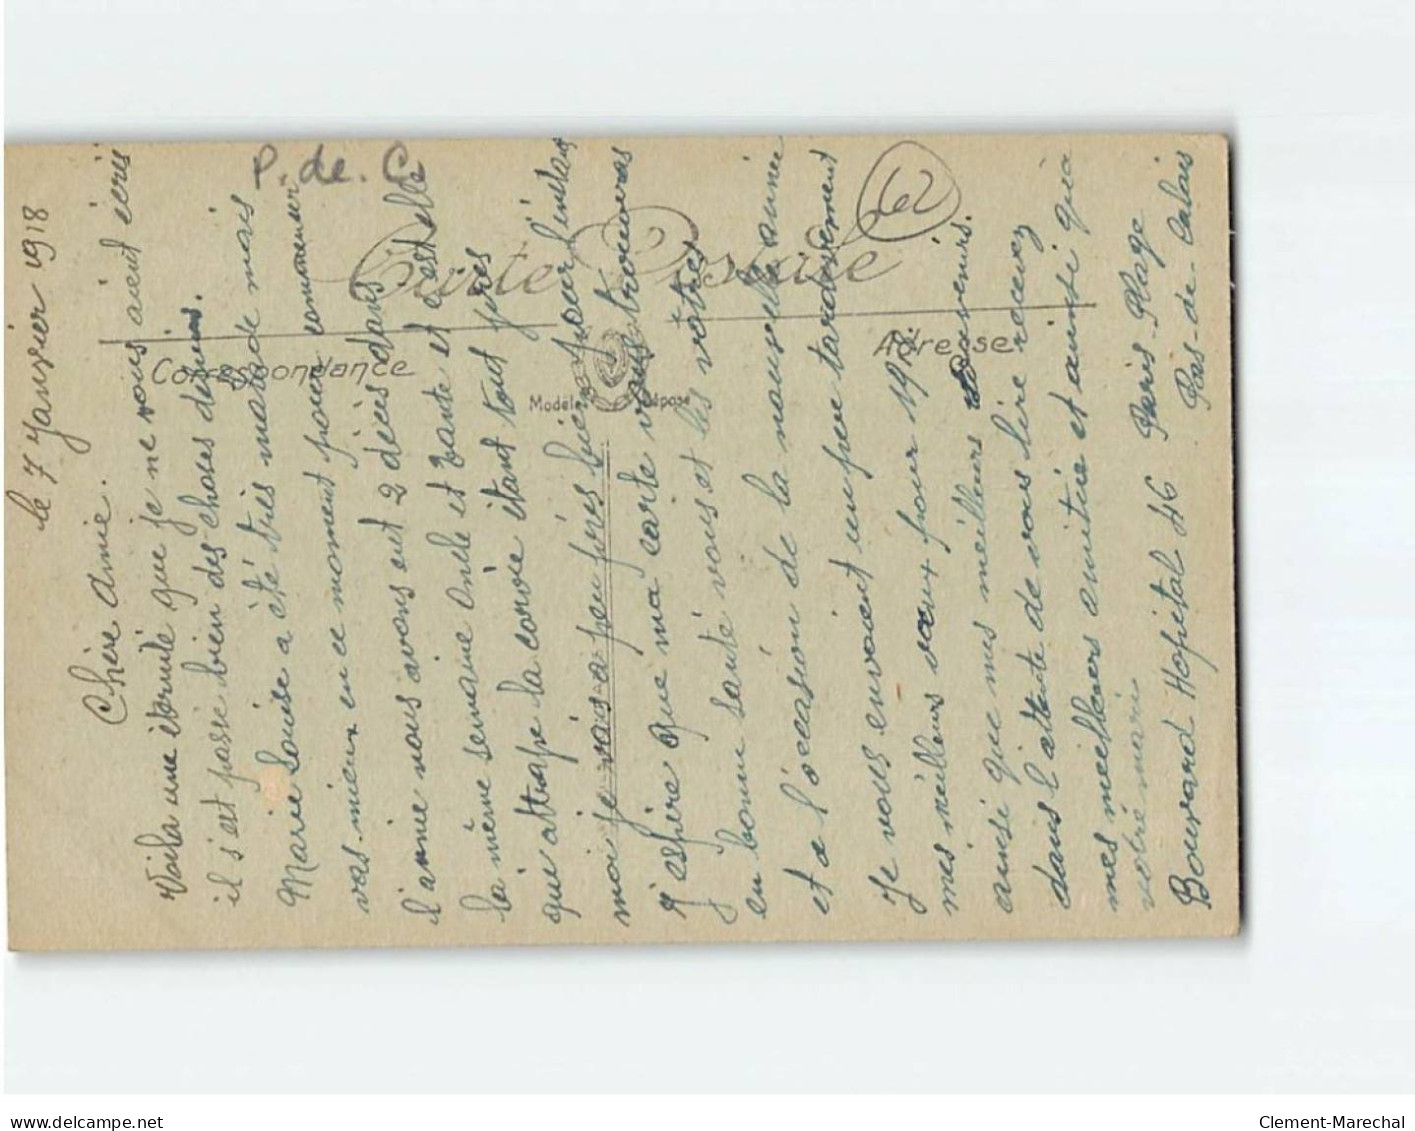 le 7 Janvier 1918
Chère Amie.
Voila une éternité que je ne vous aient écris
il s'est passé bien des choses depuis.
Marie Louise a été très malade mais
vas mieux en ce moment pour
l'année nous avons eut 2 décès dans
la même semaine Oncle et Tante et c'est elle
qui attrape la corvée étant tout
moi je vais a peu près bien pour l'instant
J'espère que ma carte vous trouveras
en bonne santé vous et les vôtres
et a l'occasion de la nouvelle année
Je vous envoient un peu tardivement
mes meilleurs vœux pour 1918
ainsi que mes meilleurs souvenirs.
dans l'attente de vous lire recevez
mes meilleurs amitiés et ainsi qu'a
votre mari
Bouvard Hopital 46 Paris-Plage
Pas-de-Calais
P. de. C.
62
Carte Postale
Correspondance
Adresse
Modèle Déposé
Clement-Marechal